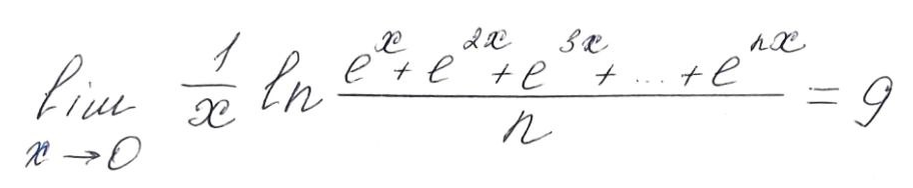 lim x→0 1/x ln (e^x + e^2x + e^3x + ... + e^nx)/n = 9